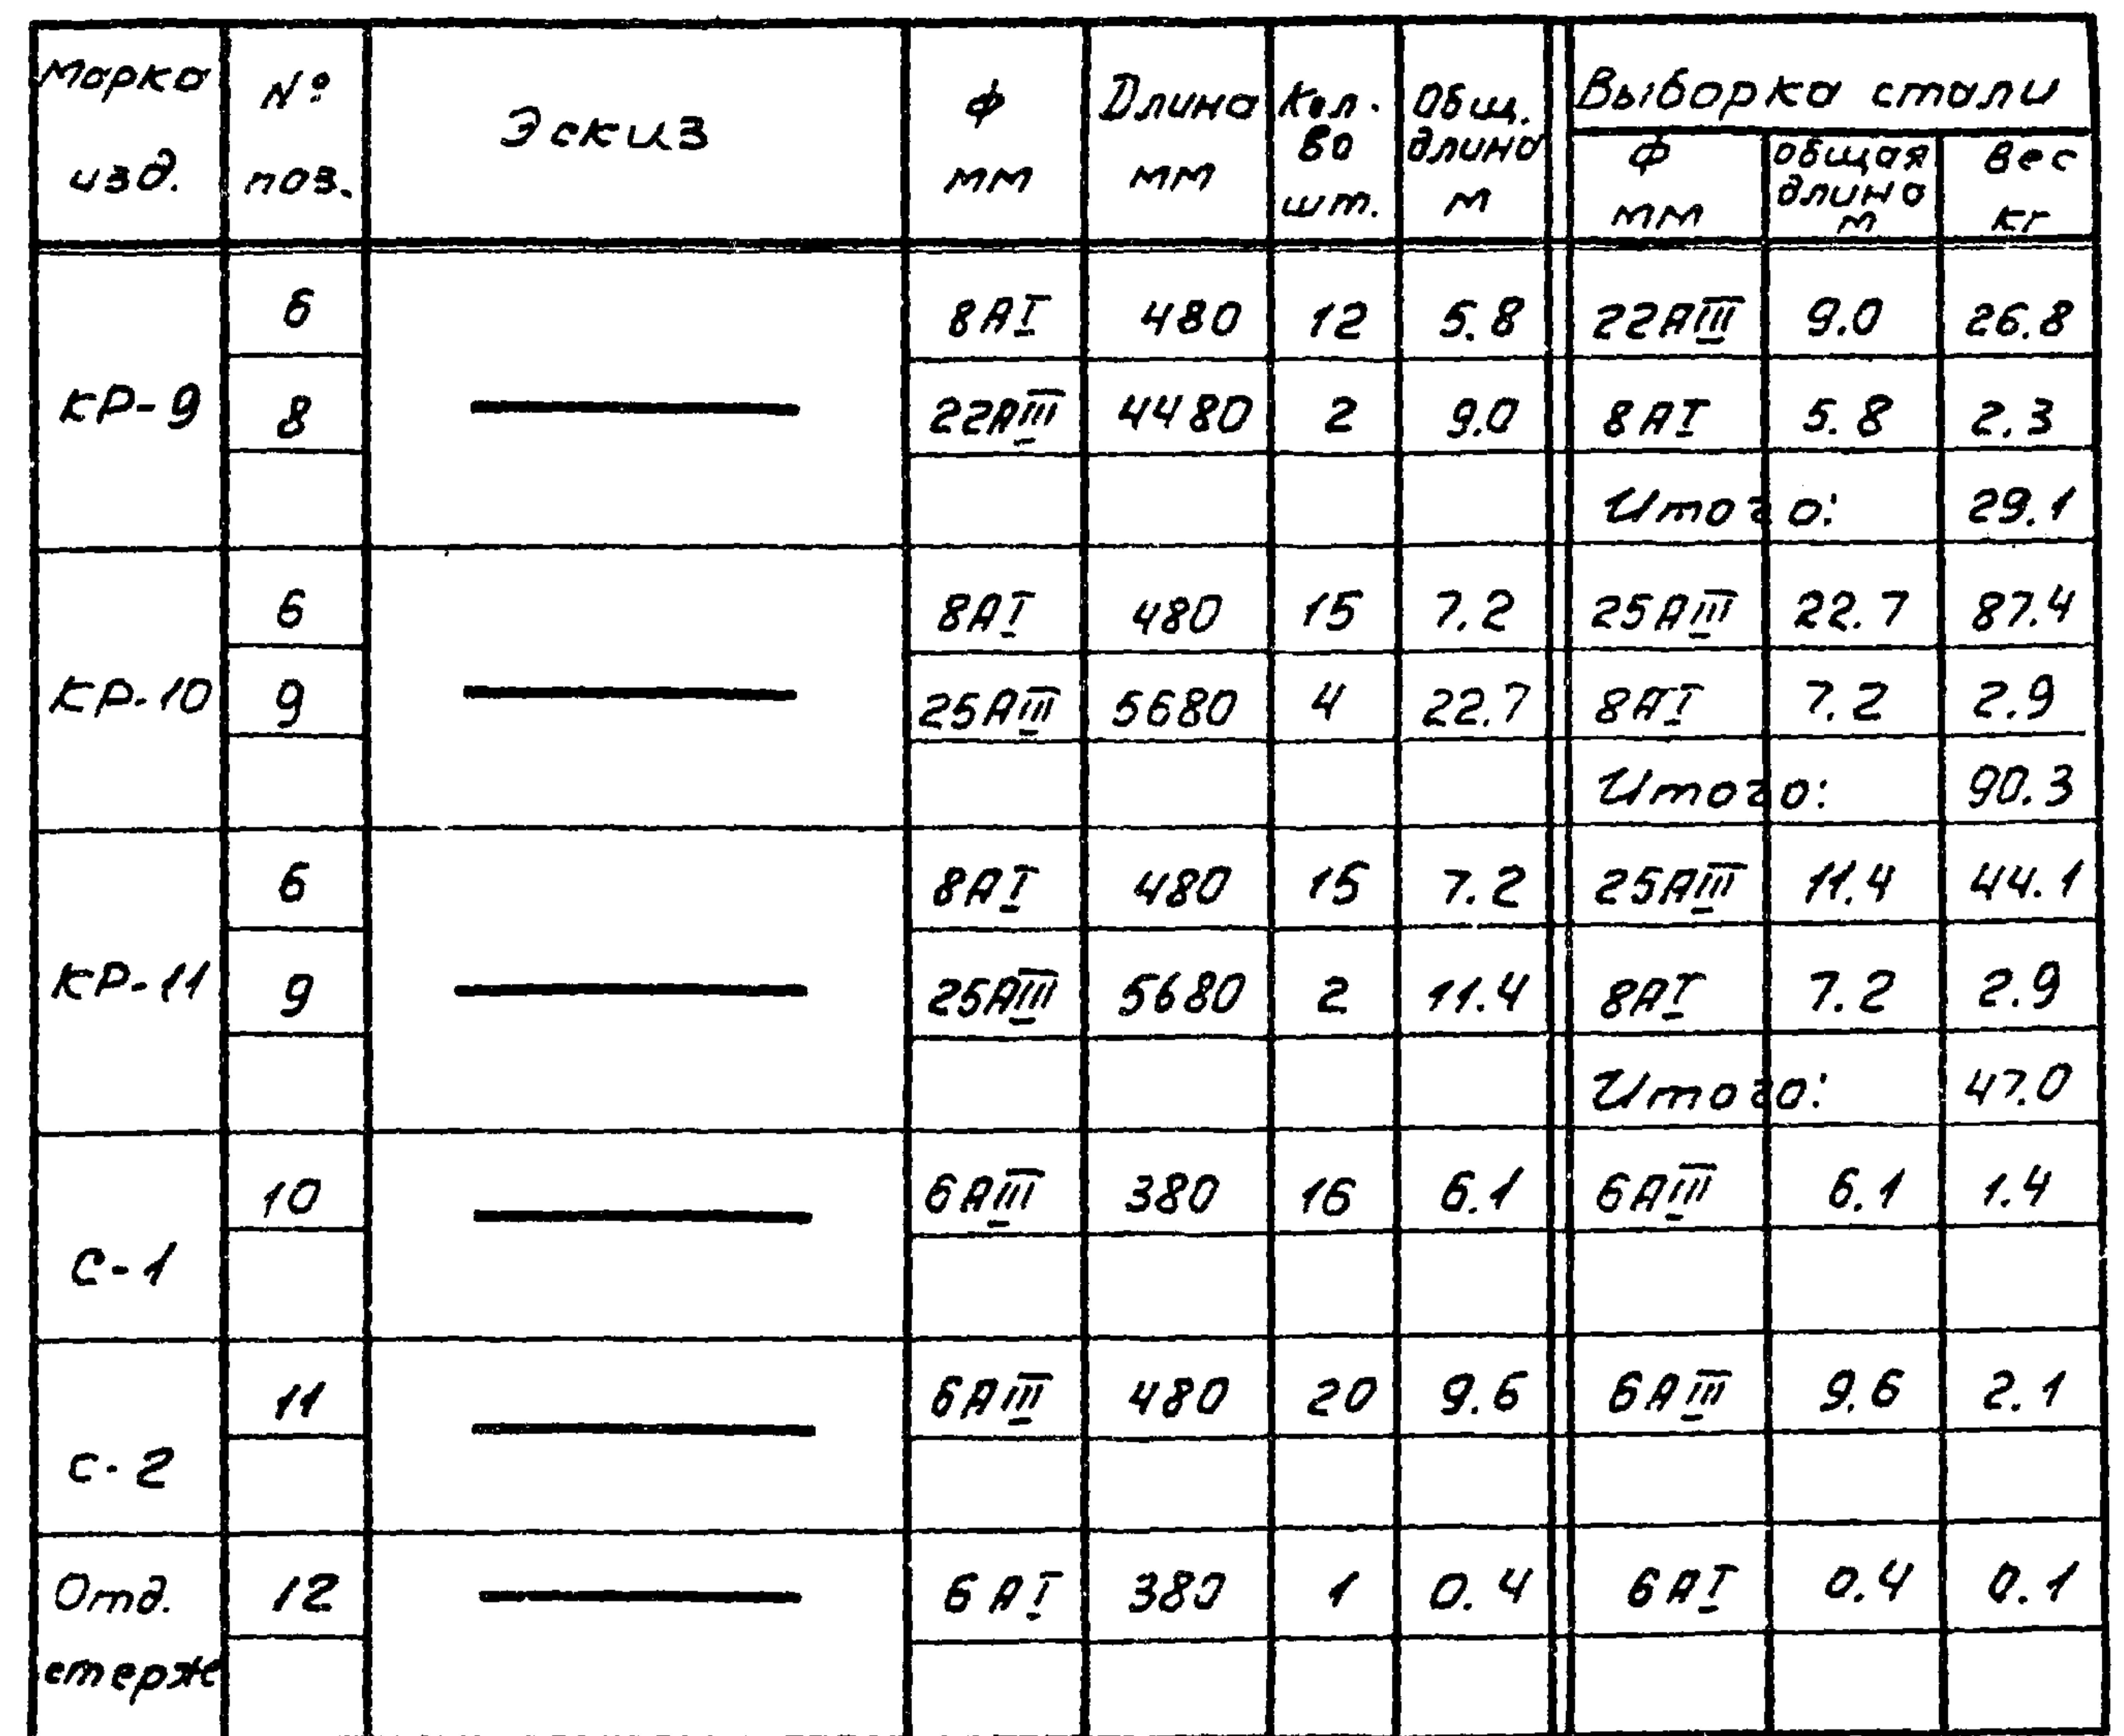 Марка изд. № поз. Эскиз Ф мм Длина мм Кол-во шт. Общ. длина м Выборка стали
Ф мм общая длина м Вес кг
6 8АI 480 12 5.8 22АIII 9.0 26.8
КР-9 8 22АIII 4480 2 9.0 8АI 5.8 2.3
Итого: 29.1
6 8АI 480 15 7.2 25АIII 22.7 87.4
КР-10 9 25АIII 5680 4 22.7 8АI 7.2 2.9
Итого: 90.3
6 8АI 480 15 7.2 25АIII 11.4 44.1
КР-11 9 25АIII 5680 2 11.4 8АI 7.2 2.9
Итого: 47.0
10 6АIII 380 16 6.1 6АIII 6.1 1.4
С-1
11 6АIII 480 20 9.6 6АIII 9.6 2.1
С-2
Отд. 12 6АI 380 1 0.4 6АI 0.4 0.1
стерже